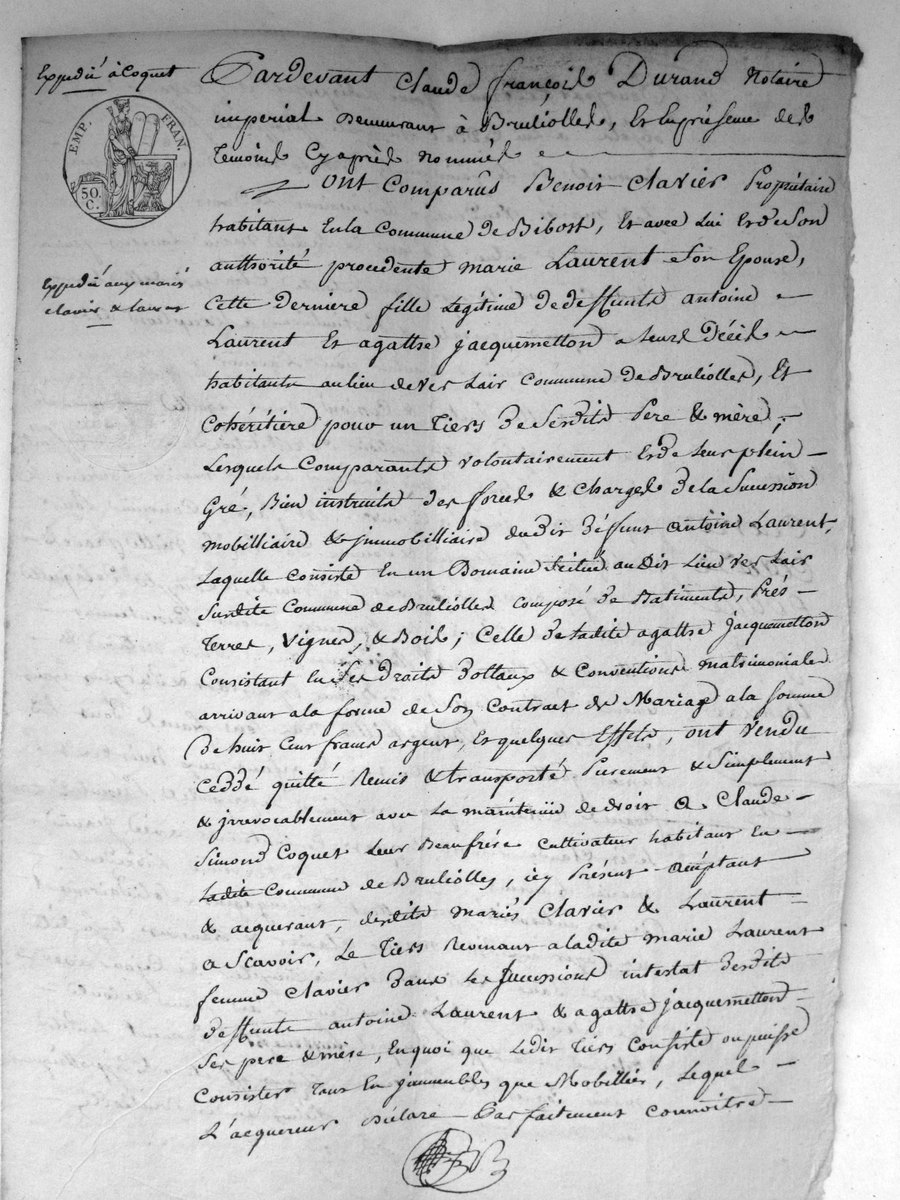 Expedié à Coquet
EMP. FRAN.
50
C.
Expedié aux mariés
clavier & laurent
Pardevant Claude françois Durand Notaire
imperial demeurant à Bruliolles, Et en présence des
temoins Cyaprès nommés
Ont Comparûs Benoit Clavier Propriétaire
habitant En la Commune de Bibost, Et avec Lui Et de Son
authorité procedente marie Laurent Son Epouse,
Cette derniere fille Légitime de deffunts antoine
Laurent Et agathe jacquemetton a leurs décès
habitants au lieu de ver Lair Commune de Brulioles, Et
Cohéritière pour un Tiers de Sesdits Pere & mère,
Lesquels Comparants volontairement Et de leur plein
Gré, Bien instruits des forces & Charges de la Succession
mobilliaire & jmmobilliaire dudit déffunt Antoine Laurent,
Laquelle Consiste En un Domaine Scitué audit Lieu ver Lair
Susdite Commune de Brulioles composé de Batiments, Prés
Terres, Vignes, & Bois; Celle de ladite agathe jacquemetton
Consistant En Ses Droits dottaux & Conventions matrimoniales
arrivant a la forme de Son Contract de Mariage a la somme
de huit Cent francs argent, Et quelques Effets, ont vendu
Ceddé quitté Remis & transporté Purement & Simplement
& jrrevocablement avec La maintenüe de droit a Claude
Simond Coquet Leur Beaufrére cultivateur habitant En
Ladite Commune de Brulioles, icy Présent acceptant
& acquerant, desdits mariés Clavier & Laurent
a Scavoir, Le Tiers Revenant a ladite marie Laurent
femme Clavier dans Les Successions intestat desdits
deffunts antoine Laurent & agathe jacquemetton
Ses pere & mère, En quoi que Ledit Tiers Consiste ou puisse
Consister tant En jmmeubles que Mobilliers, Lequel
L'acquereur déclare Parfaitement Connoitre